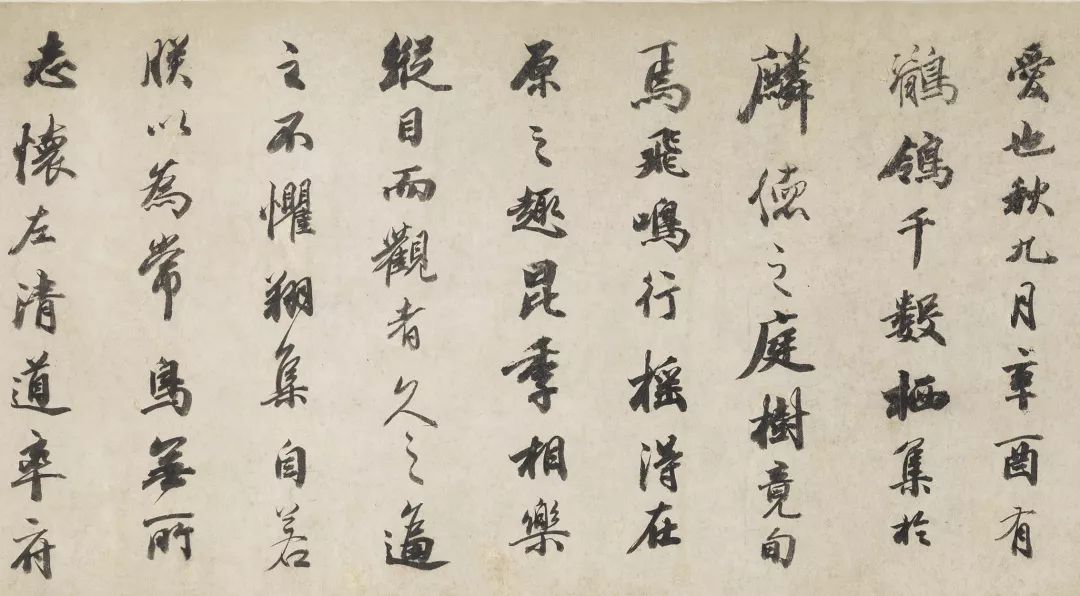 愛也秋九月辛酉有
鶺鴒千數栖集於
麟德之庭樹竟旬
焉飛鳴行搖得在
原之趣昆季相樂
縱目而觀者久之逼
之不懼翔集自若
朕以為常鳥無所
志懷左清道率府